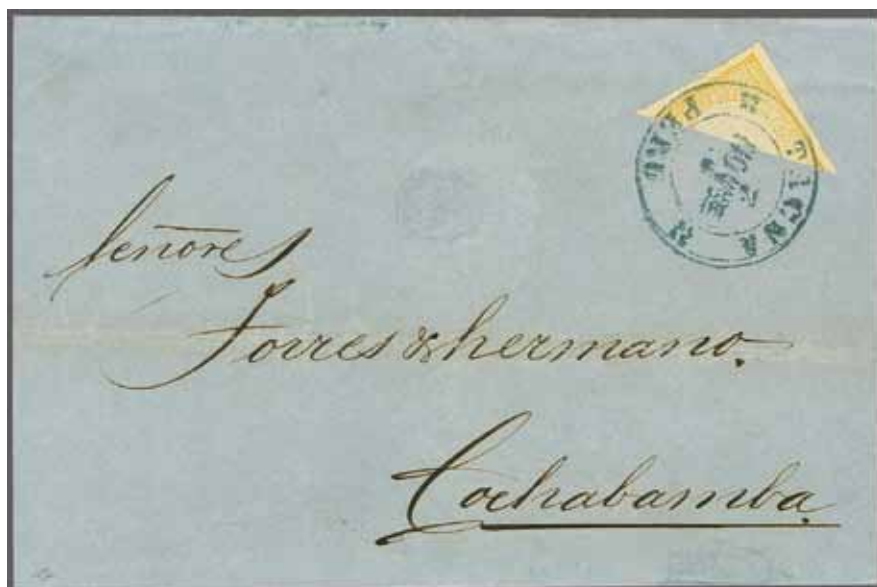 TACNA
PERU
Señores
Torres & hermano.
Cochabamba